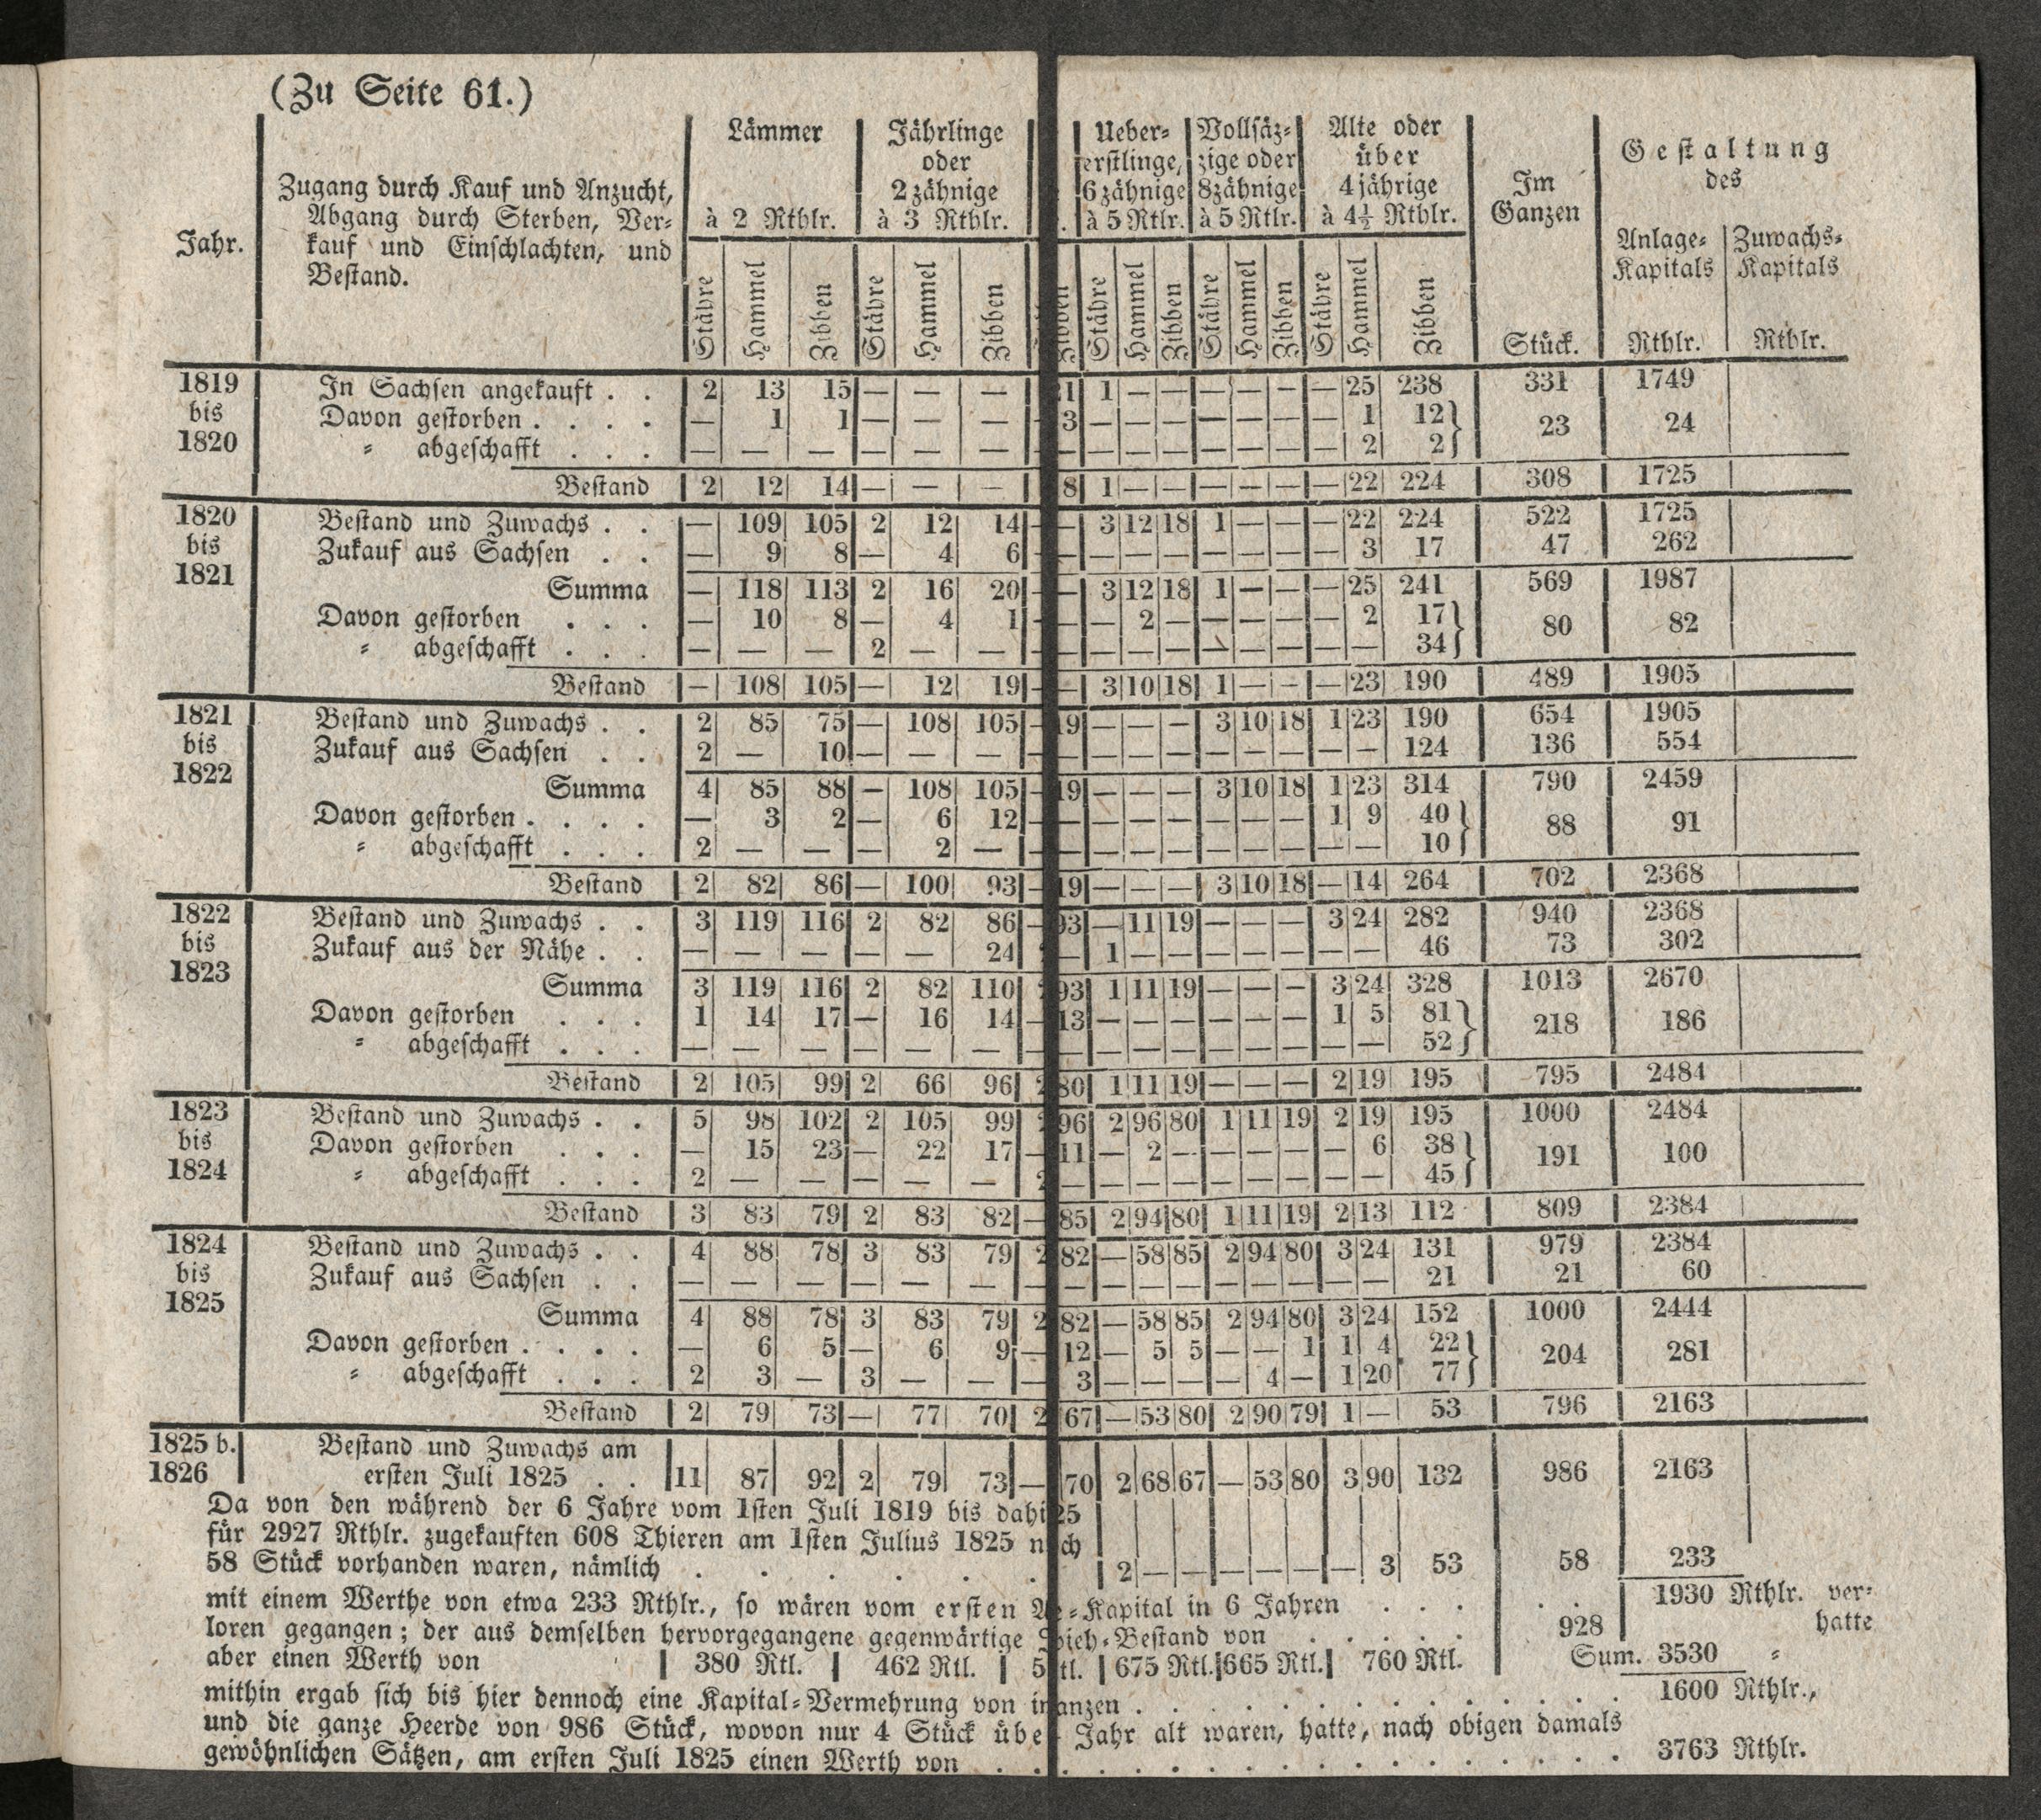 (Zu Seite 61.)
Jahr. | Zugang durch Kauf und Anzucht, Abgang durch Sterben, Verkauf und Einschlachten, und Bestand. | Lämmer à 2 Rthlr. | Jährlinge oder 2zähnige à 3 Rthlr. | Ueber-erstlinge, 6zähnige à 5 Rtlr. | Vollsäz-zige oder 8zähnige à 5 Rtlr. | Alte oder über 4jährige à 4½ Rthlr. | Im Ganzen | Gestaltung des
Anlage-Kapitals | Zuwachs-Kapitals
Stähre | Hammel | Zibben | Stähre | Hammel | Zibben | Zibben | Stähre | Hammel | Zibben | Stähre | Hammel | Zibben | Stähre | Hammel | Zibben | Stück. | Rthlr. | Rthlr.
1819 bis 1820
In Sachsen angekauft . . 2 13 15 — — — 21 1 — — — — — — 25 238 331 1749
Davon gestorben . . . . — 1 1 — — — 3 — — — — — — — 1 12} 23 24
= abgeschafft . . . — — — — — — — — — — — — — — 2 2}
Bestand 2 12 14 — — — 8 1 — — — — — — 22 224 308 1725
1820 bis 1821
Bestand und Zuwachs . . — 109 105 2 12 14 — 3 12 18 1 — — — 22 224 522 1725
Zukauf aus Sachsen . . — 9 8 — 4 6 — — — — — — — — 3 17 47 262
Summa — 118 113 2 16 20 — 3 12 18 1 — — — 25 241 569 1987
Davon gestorben . . . — 10 8 — 4 1 — — 2 — — — — — 2 17} 80 82
= abgeschafft . . . — — — 2 — — — — — — — — — — — 34}
Bestand — 108 105 — 12 19 — 3 10 18 1 — — — 23 190 489 1905
1821 bis 1822
Bestand und Zuwachs . . 2 85 75 — 108 105 19 — — — 3 10 18 1 23 190 654 1905
Zukauf aus Sachsen . . 2 — 10 — — — — — — — — — — — — 124 136 554
Summa 4 85 88 — 108 105 19 — — — 3 10 18 1 23 314 790 2459
Davon gestorben . . . . — 3 2 — 6 12 — — — — — — — 1 9 40} 88 91
= abgeschafft . . . 2 — — — 2 — — — — — — — — — — 10}
Bestand 2 82 86 — 100 93 19 — — — 3 10 18 — 14 264 702 2368
1822 bis 1823
Bestand und Zuwachs . . 3 119 116 2 82 86 93 — 11 19 — — — 3 24 282 940 2368
Zukauf aus der Nähe . . — — — — — 24 — 1 — — — — — — — 46 73 302
Summa 3 119 116 2 82 110 93 1 11 19 — — — 3 24 328 1013 2670
Davon gestorben . . . 1 14 17 — 16 14 13 — — — — — — 1 5 81} 218 186
= abgeschafft . . . — — — — — — — — — — — — — — — 52}
Bestand 2 105 99 2 66 96 80 1 11 19 — — — 2 19 195 795 2484
1823 bis 1824
Bestand und Zuwachs . . 5 98 102 2 105 99 96 2 96 80 1 11 19 2 19 195 1000 2484
Davon gestorben . . . — 15 23 — 22 17 11 — 2 — — — — — 6 38} 191 100
= abgeschafft . . . 2 — — — — — — — — — — — — — — 45}
Bestand 3 83 79 2 83 82 85 2 94 80 1 11 19 2 13 112 809 2384
1824 bis 1825
Bestand und Zuwachs . . 4 88 78 3 83 79 82 — 58 85 2 94 80 3 24 131 979 2384
Zukauf aus Sachsen . . — — — — — — — — — — — — — — — 21 21 60
Summa 4 88 78 3 83 79 82 — 58 85 2 94 80 3 24 152 1000 2444
Davon gestorben . . . . — 6 5 — 6 9 12 — 5 5 — — 1 1 4 22} 204 281
= abgeschafft . . . 2 3 — 3 — — 3 — — — — 4 — 1 20 77}
Bestand 2 79 73 — 77 70 67 — 53 80 2 90 79 1 — 53 796 2163
1825 b. 1826
Bestand und Zuwachs am
ersten Juli 1825 . . 11 87 92 2 79 73 70 2 68 67 — 53 80 3 90 132 986 2163
Da von den während der 6 Jahre vom 1sten Juli 1819 bis dahi 25
für 2927 Rthlr. zugekauften 608 Thieren am 1sten Julius 1825 n ch
58 Stück vorhanden waren, nämlich . . . . . . 2 — — — — — — 3 53 58 233
mit einem Werthe von etwa 233 Rthlr., so wären vom ersten =Kapital in 6 Jahren . . . . . 1930 Rthlr. ver-
loren gegangen; der aus demselben hervorgegangene gegenwärtige Vieh=Bestand von . . . . . 928 hatte
aber einen Werth von 380 Rtl. 462 Rtl. 5 tl. 675 Rtl. 665 Rtl. 760 Rtl. Sum. 3530 =
mithin ergab sich bis hier dennoch eine Kapital=Vermehrung von i anzen . . . . . . . . 1600 Rthlr.,
und die ganze Heerde von 986 Stück, wovon nur 4 Stück übe Jahr alt waren, hatte, nach obigen damals
gewöhnlichen Sätzen, am ersten Juli 1825 einen Werth von . . . . . . . . . . . 3763 Rthlr.